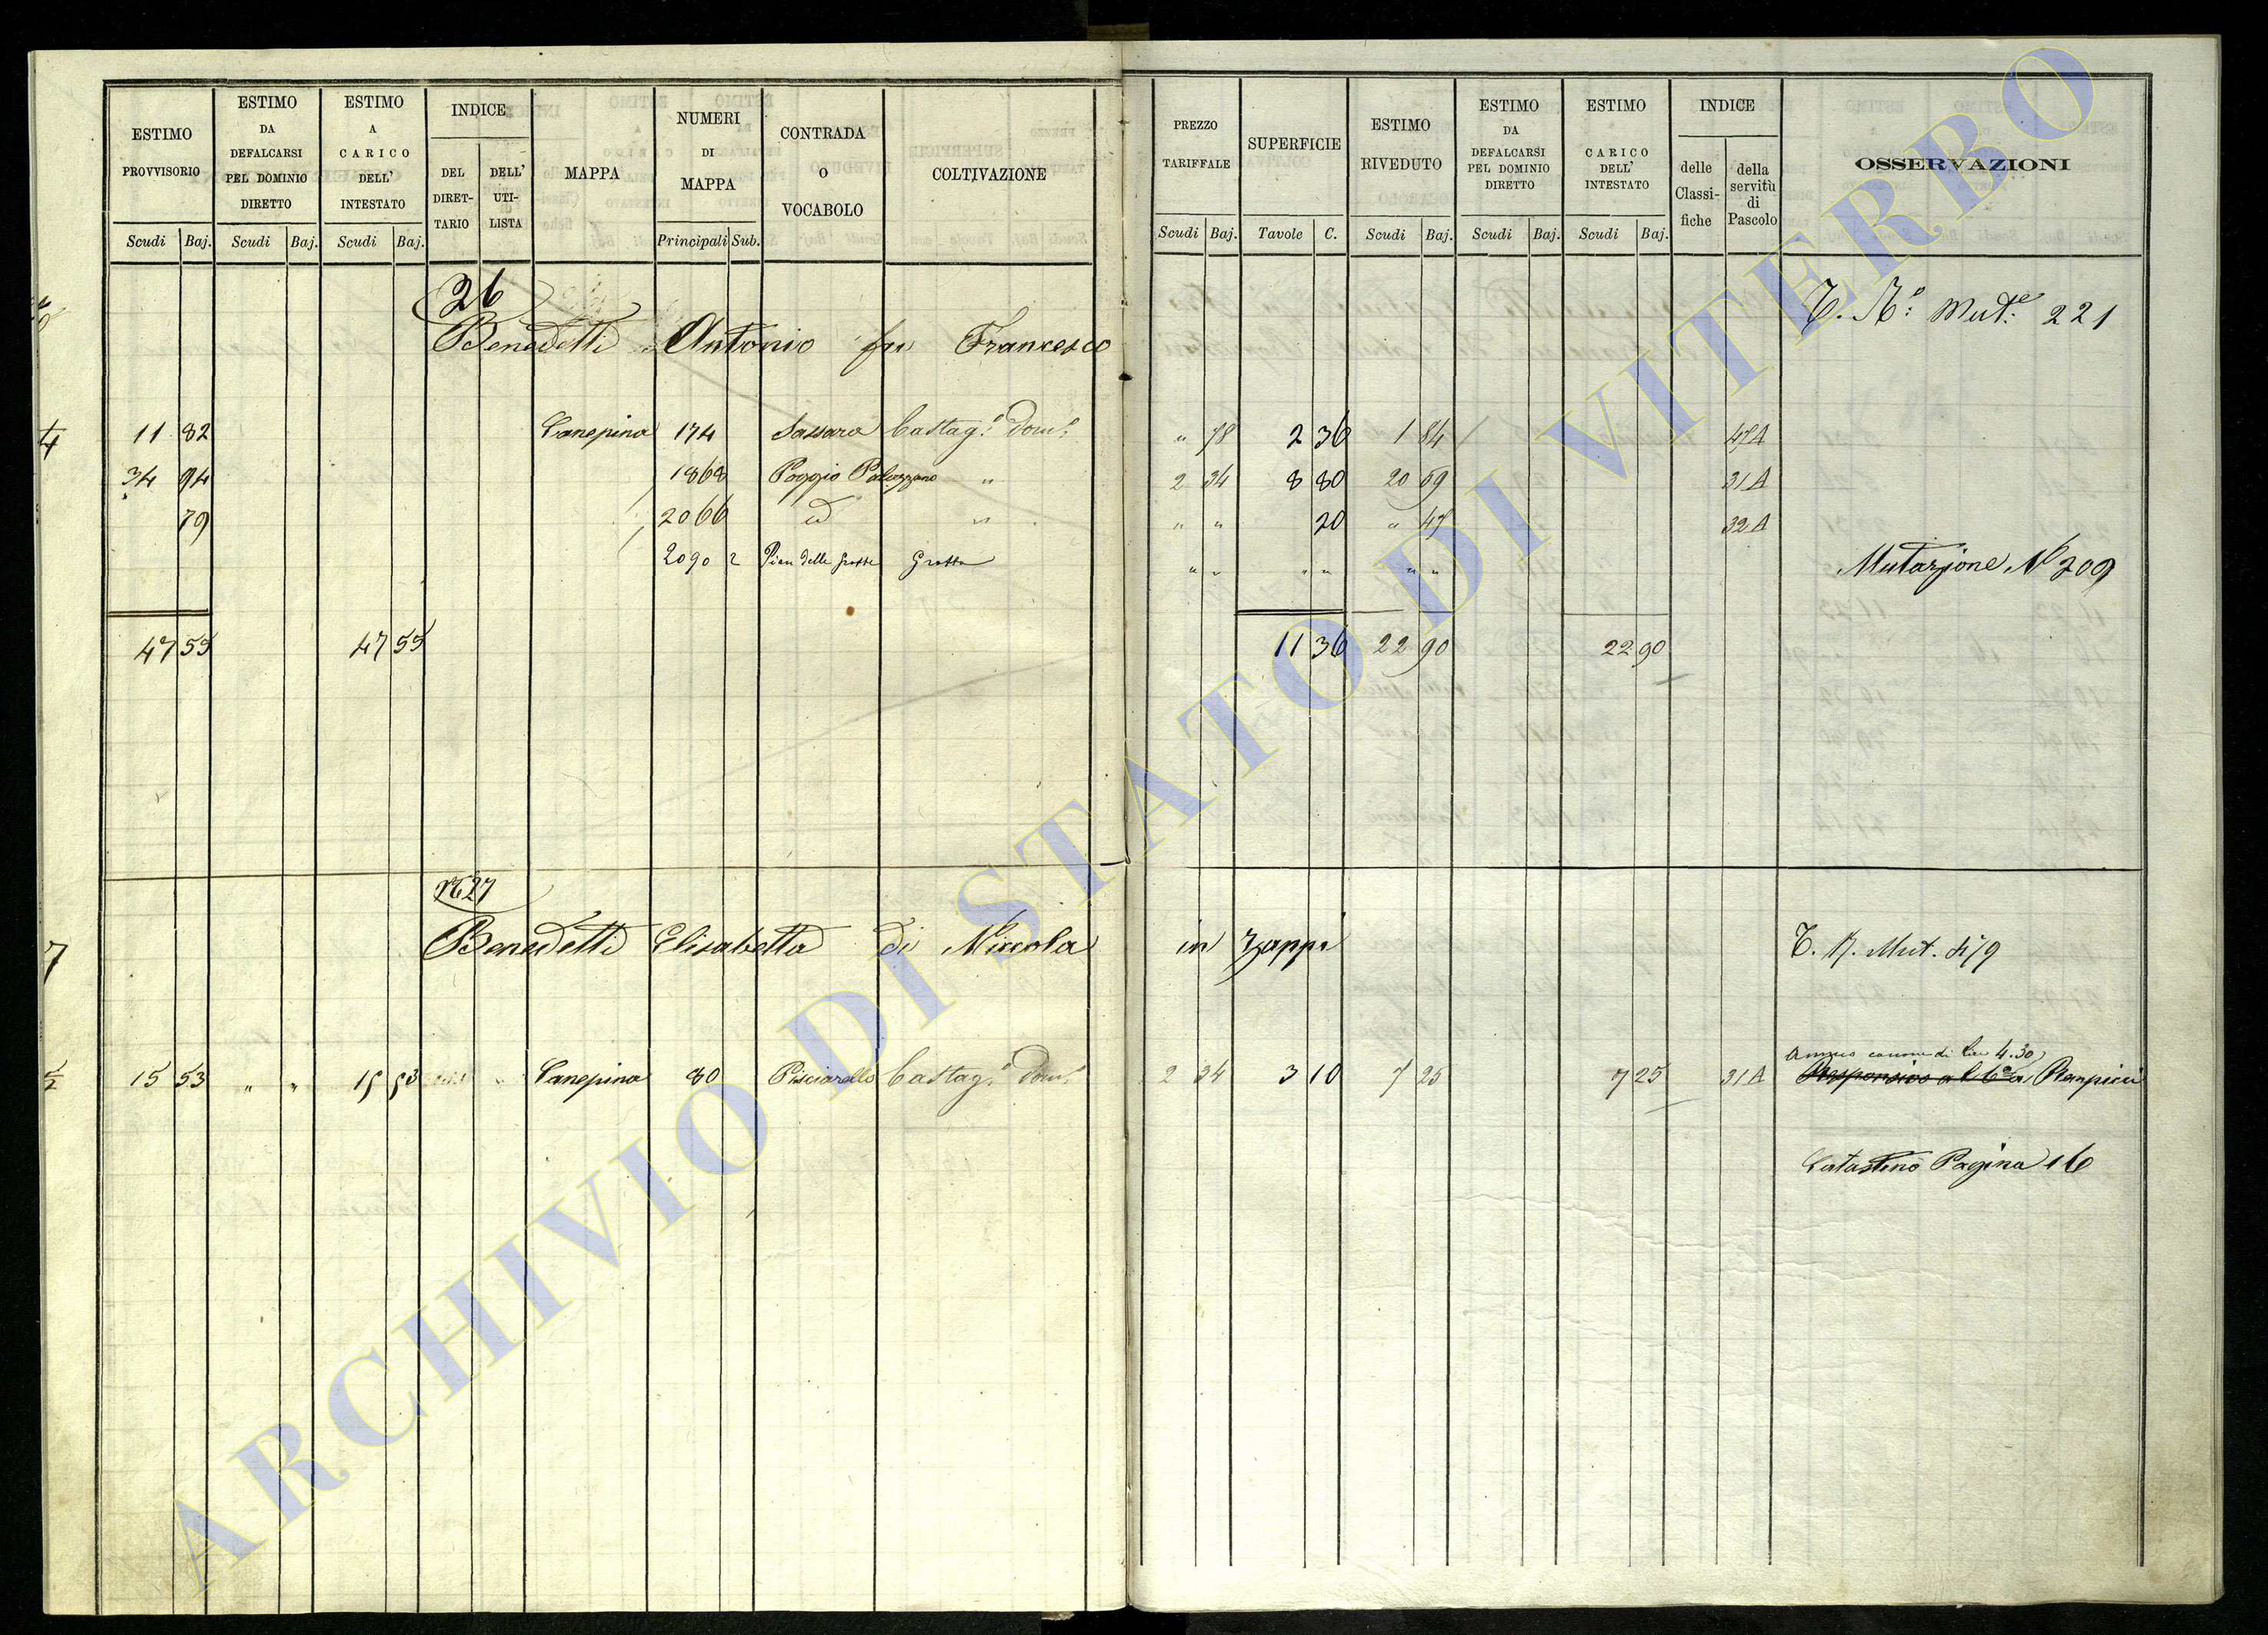 ESTIMO PROVVISORIO Scudi Baj. ESTIMO DA DEFALCARSI PEL DOMINIO DIRETTO Scudi Baj. ESTIMO A CARICO DELL' INTESTATO Scudi Baj. INDICE DEL DIRET-TARIO DELL' UTI-LISTA MAPPA NUMERI DI MAPPA Principali Sub. CONTRADA O VOCABOLO COLTIVAZIONE PREZZO TARIFFALE Scudi Baj. SUPERFICIE Tavole C. ESTIMO RIVEDUTO Scudi Baj. ESTIMO DA DEFALCARSI PEL DOMINIO DIRETTO Scudi Baj. ESTIMO CARICO DELL' INTESTATO Scudi Baj. INDICE delle Classi-fiche della servitù di Pascolo OSSERVAZIONI
26
Benedetti Antonio fu Francesco T. N.° Mut.e 221
11 82 Canepina 174 Sassara Castag.° Dom.° " 78 2 36 1 84 47A
34 94 1868 Poggio Palazzano " 2 34 8 80 20 59 31A
79 2066 id " " " 20 " 47 32A
2090 2 Pian delle Grotte Grotta " " " " " " Mutazione N° 209
47 55 47 55 11 36 22 90 22 90
N° 27
Benedetti Elisabetta di Niccola in Zappi T. N. Mut. 479
annuo canone di Lire 4.30
15 53 " " 15 53 Canepina 80 Pisciarello Castag.° Dom.° 2 34 3 10 7 25 7 25 31A Responsivo a Rempicci
Catastino Pagina 16
ARCHIVIO DI STATO DI VITERBO